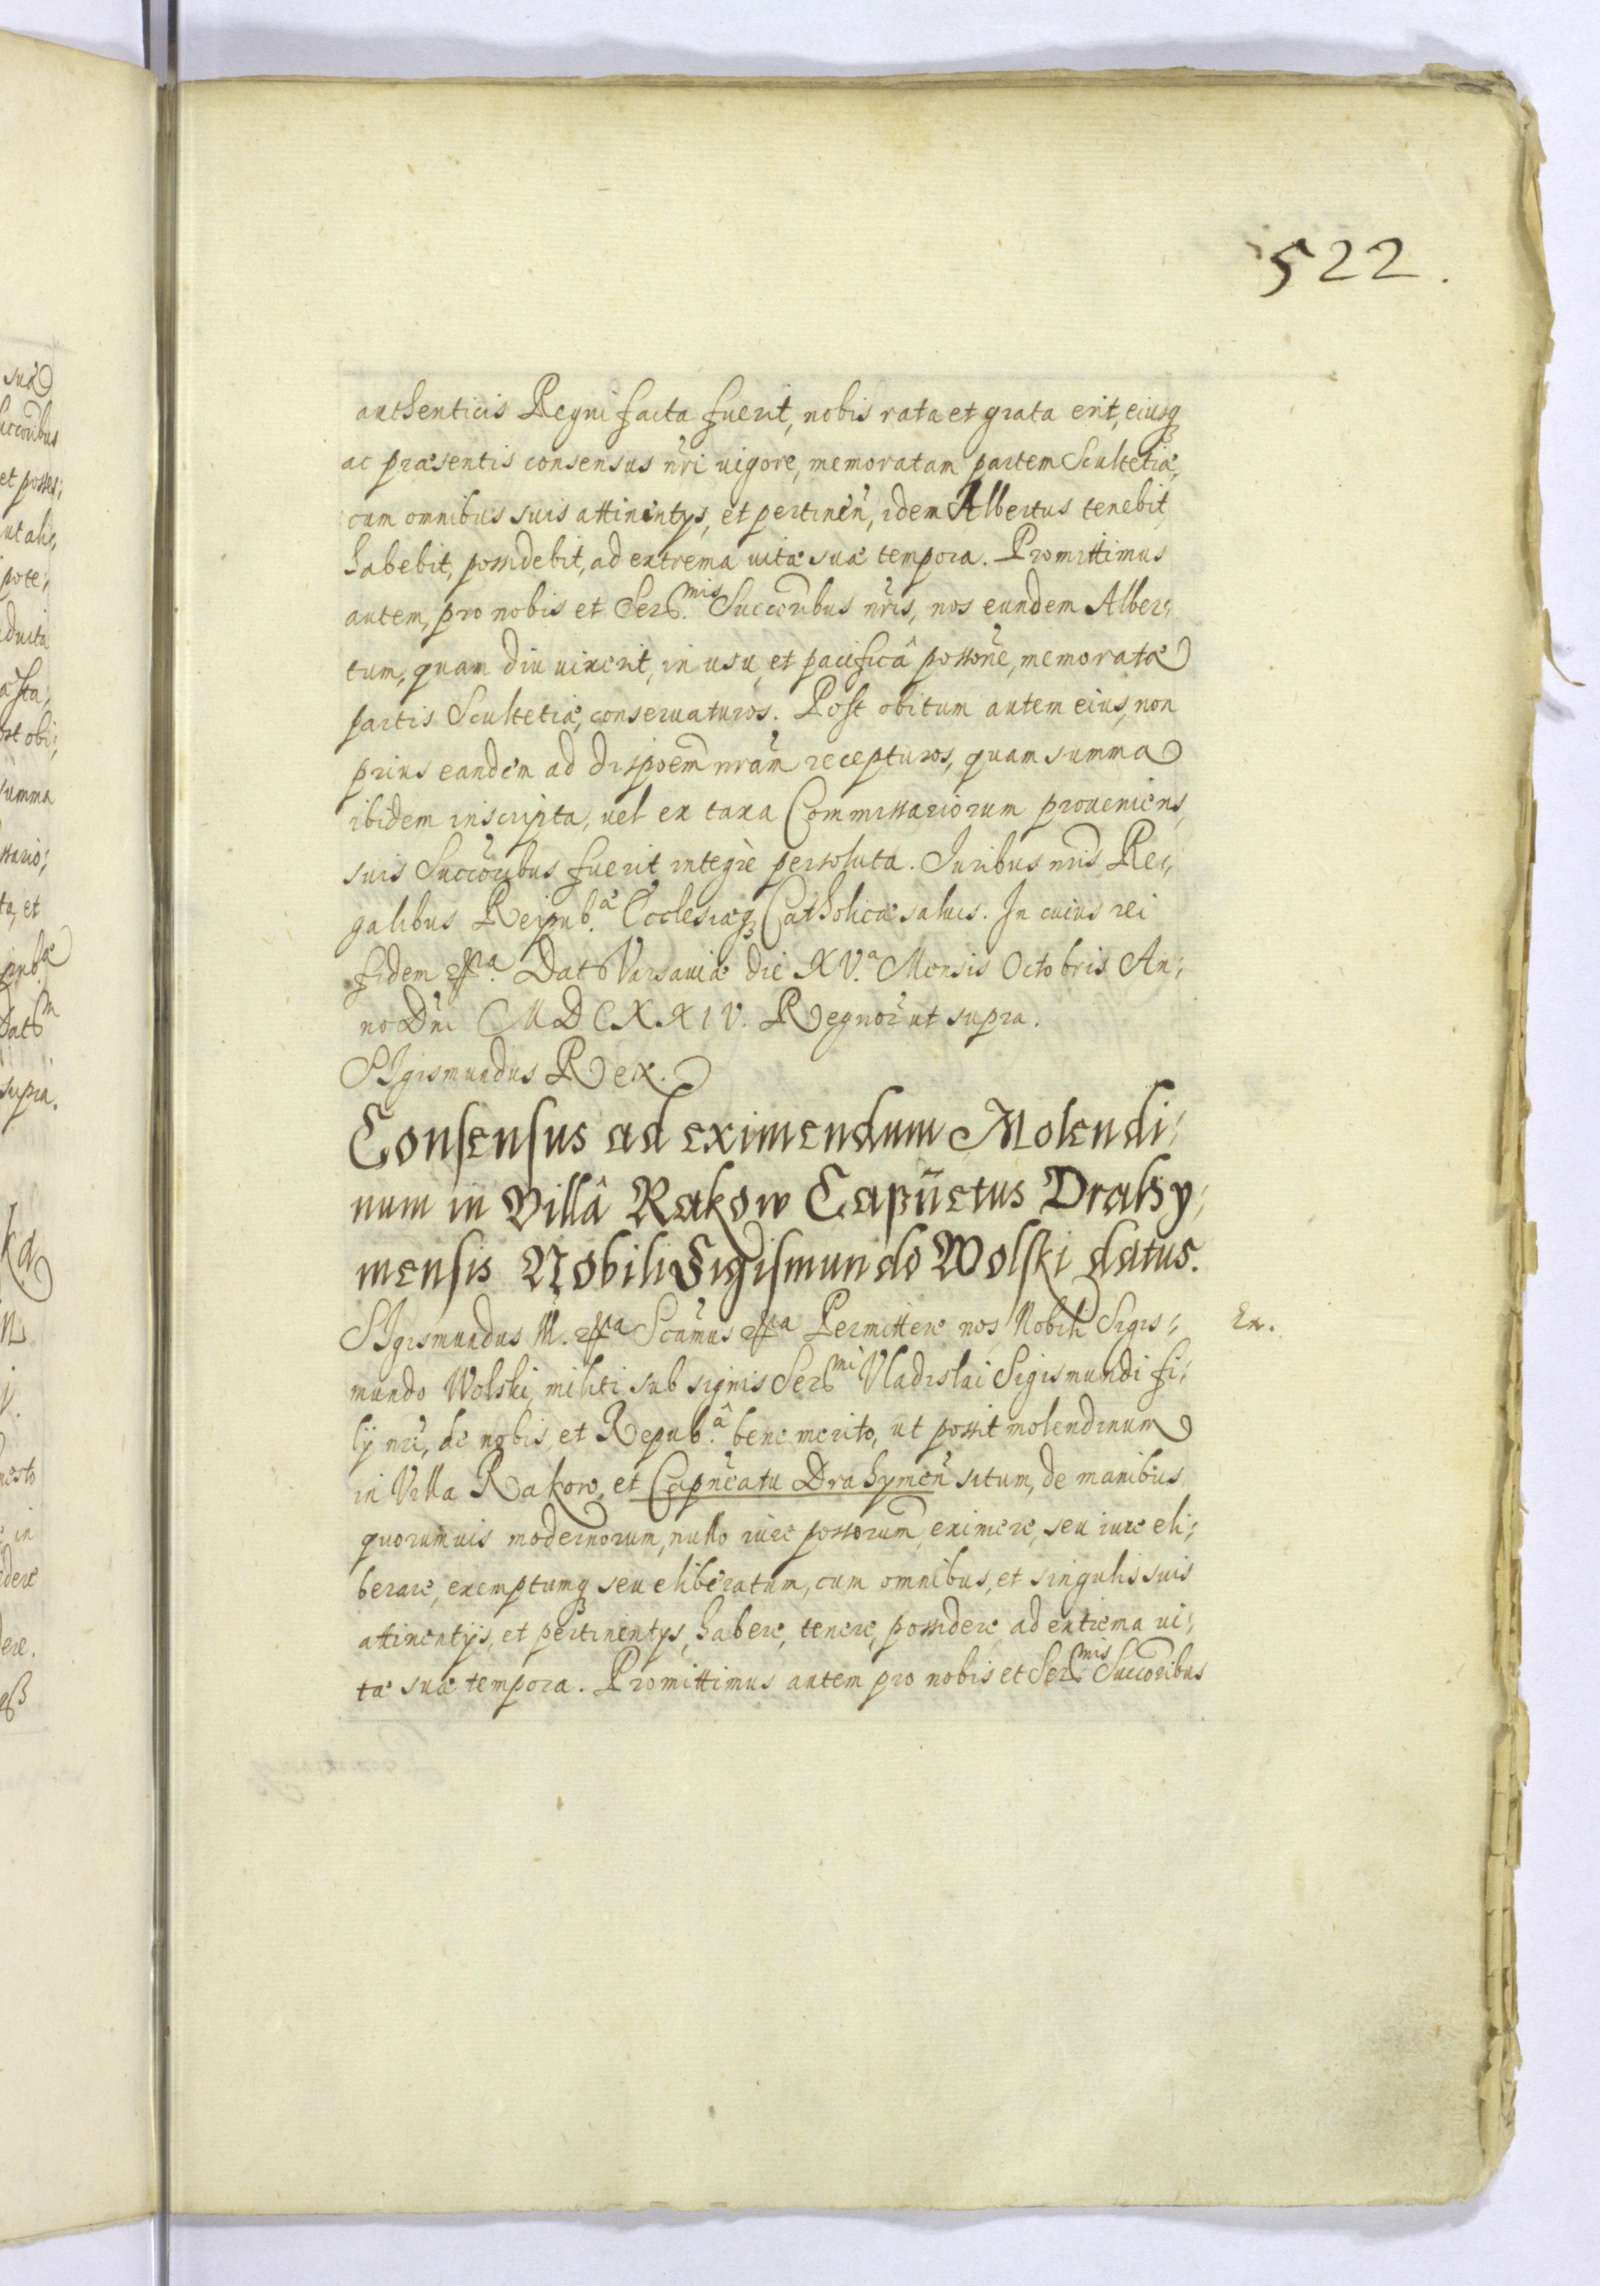 522.
authenticis Regni facta fuerit, nobis rata et grata erit, eiusq
ac præsentis consensus nri uigore, memoratam partem Scultetiæ,
cum omnibus suis attinentys, et pertinen, idem Albertus tenebit,
habebit, possidebit, ad extrema uitæ suæ tempora. Promittimus
autem, pro nobis et Ser.mis Succoribus nris, nos eundem Alber;
tum, quam diu uixerit, in usu, et pacificâ possone, memoratæ
partis Scultetiæ, conseruaturos. Post obitum autem eius, non
prius eandem ad dispoem nram recepturos, quam summa
ibidem inscripta, uel ex taxa Commissariorum proueniens,
suis Succoribus fuerit integrè persoluta. Iuribus nris Re;
galibus Reipub.æ Ecclesiæq Catholicæ saluis. In cuius rei
fidem etc.a Dat Varsauiæ die XV.a Mensis Octobris An;
no Dni MDCXXIV. Regnor ut supra.
SIgismundus Rex.
Consensus ad eximendum Molendi;
num in Villâ Rakow Capnctus Drahy;
mensis Nobili Sigismundo Wolski datus.
SIgismundus III. etc.a Scamus etc.a Permittere nos, Nobili Sigis;
Ex.
mundo Wolski, militi sub signis Ser.mi Vladislai Sigismundi fi;
lij nri, de nobis, et Repub.â bene merito, ut possit molendinum
in Villa Rakow, et Capncatu Drahymen situm, de manibus
quorumuis modernorum, nullo iure possorum, eximere, seu iure eli;
berare, exemptumq seu eliberatum, cum omnibus, et singulis suis
attinentijs, et pertinentys, habere, tenere, possidere ad extrema ui;
tæ suæ tempora. Promittimus autem pro nobis et Ser.mis Succoribus